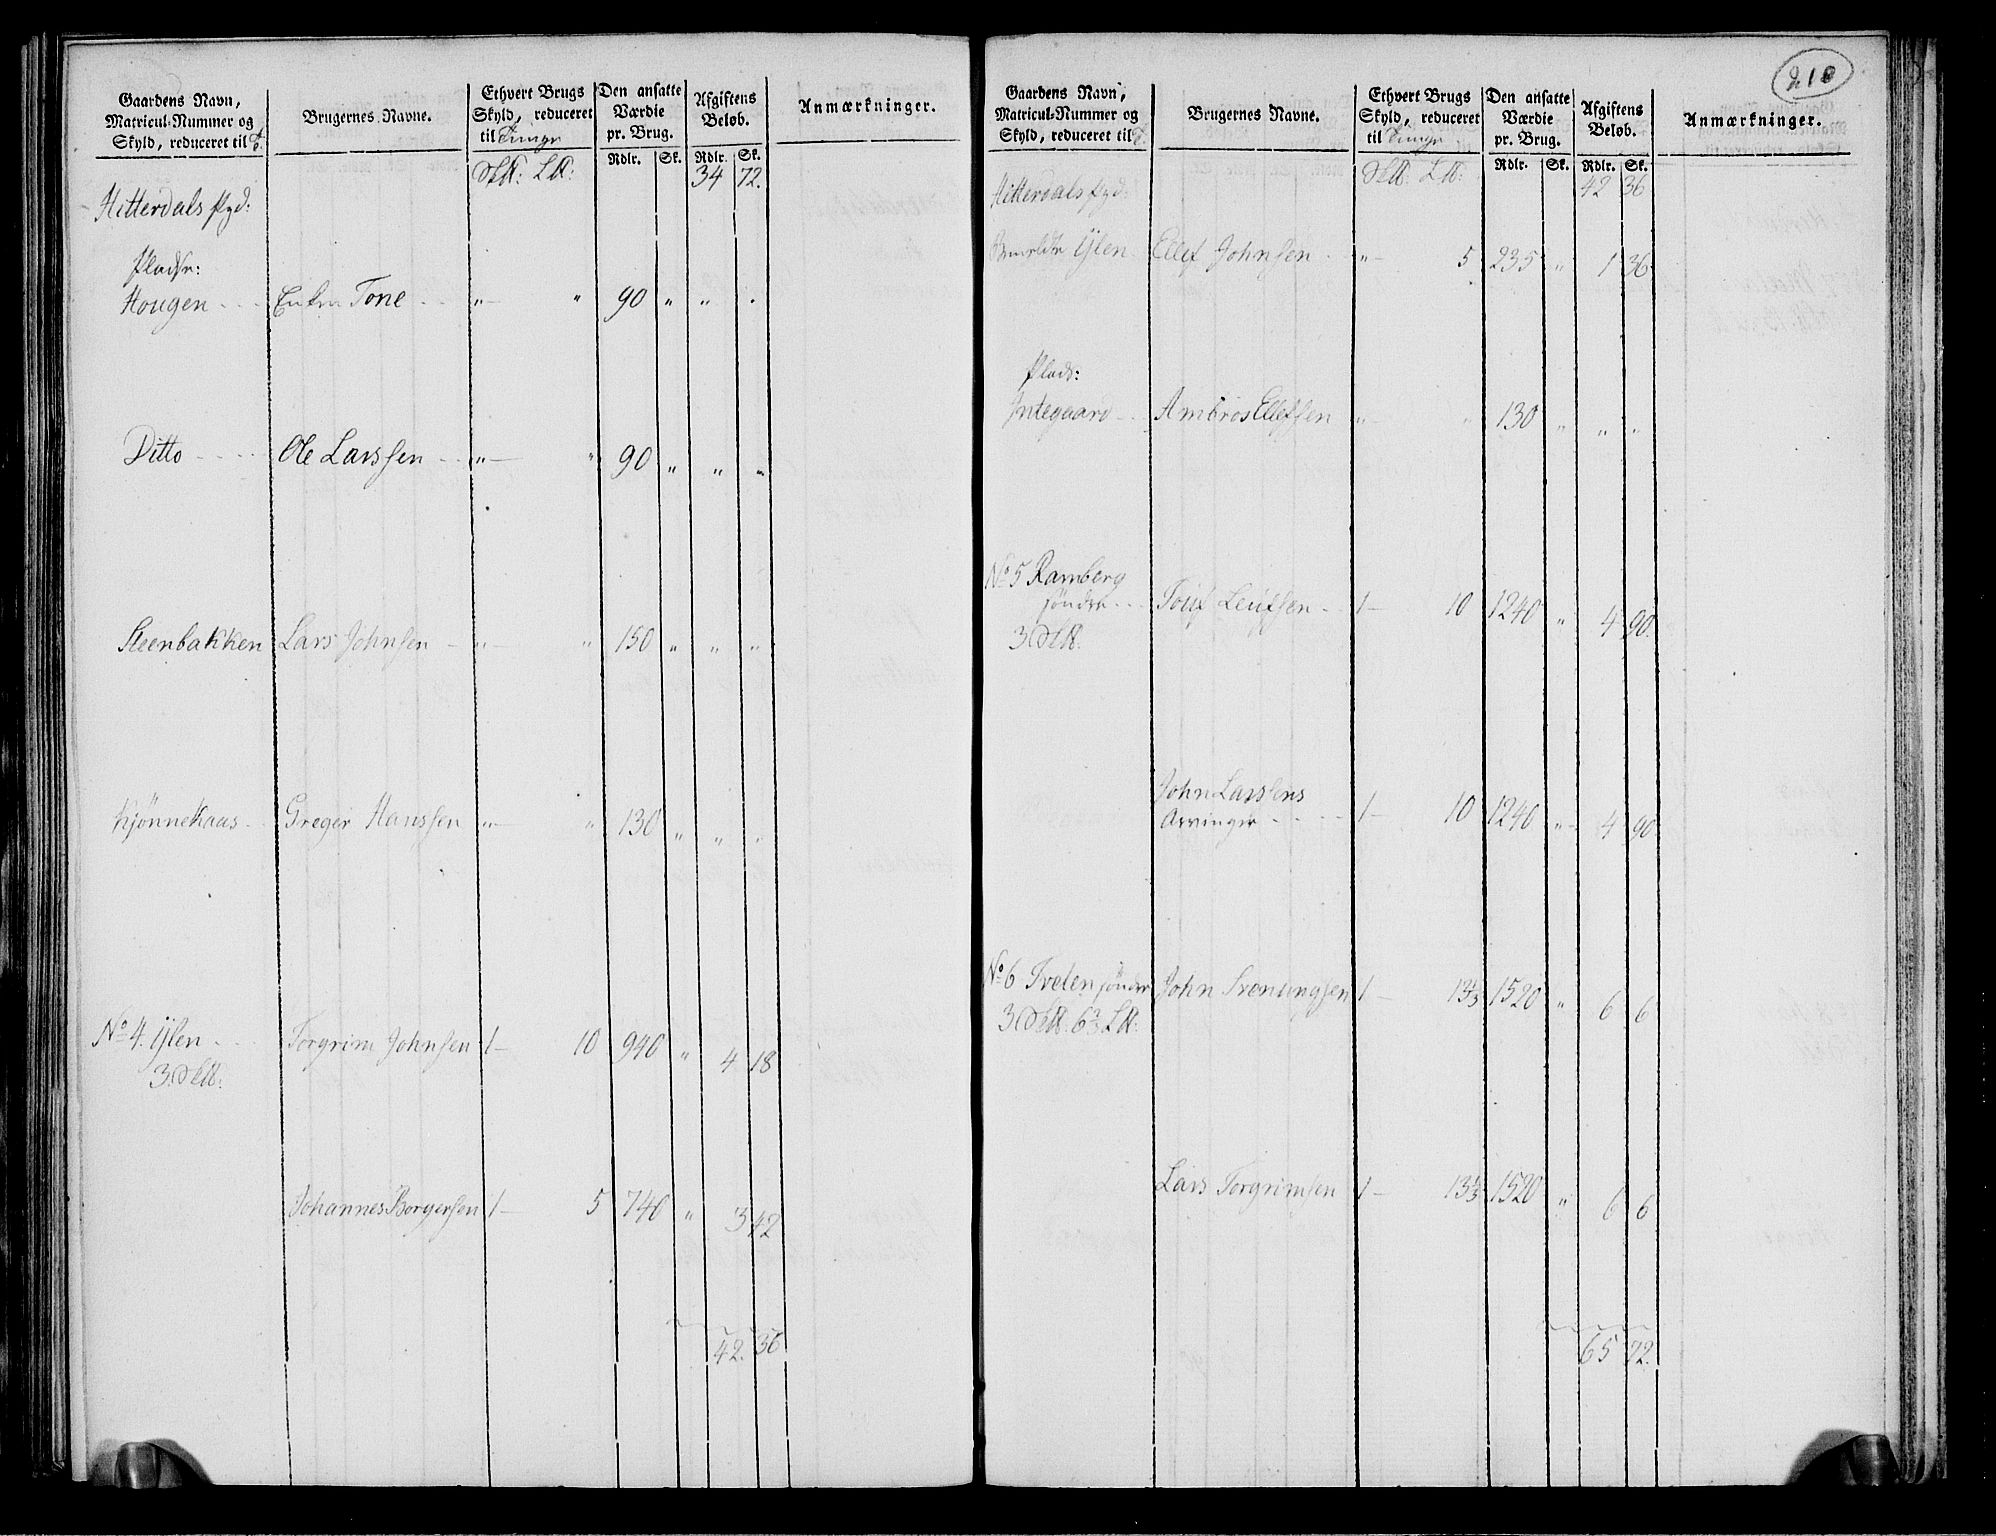 210
Gaardens Navn, Matricul-Nummer og Skyld, reduceret til
Brugernes Navne.
Ethvert Brugs Skyld, reduceret til Tunge
Den ansatte Værdie pr. Brug.
Afgiftens Beløb.
Anmærkninger.
Rdlr. Sk. Rdlr. Sk.
34 72.
Hitterdals
Pladse:
Hougen - - - Enken Tone - - „ „ 90 „ „ „
Ditto - - - - Ole Larssen - - „ „ 90 „ „ „
Steenbakken Lars Johnsen - „ „ 150 „ „ „
Kjønnekaas - Greger Hanssen „ „ 130 „ „ „
No 4. Ylen - - - Torgrim Johnsen 1 - 10 940 „ 4 18
Johannes Borgersen 1 - 5 740 „ 3 42
42. 36
Gaardens Navn, Matricul-Nummer og Skyld, reduceret til
Brugernes Navne.
Ethvert Brugs Skyld, reduceret til Tunge
Den ansatte Værdie pr. Brug.
Afgiftens Beløb.
Anmærkninger.
Rdlr. Sk. Rdlr. Sk.
42 36
Hitterdals
Ylen Ellef Johnsen - - „ 5 235 „ 1 36
Plads:
Ambros Ellefsen „ „ 130 „ „ „
No 5 Ramberg
søndre - - - Touf Leufsen - - 1 - 10 1240 „ 4 90.
John Larssens
Arvinger - - - - 1 - 10 1240 „ 4 90
No 6 Tveten søndre John Svenungsen 1 - 13⅓ 1520 „ 6 6
Lars Torgrimsen 1 - 13⅓ 1520 „ 6 6
65 72.